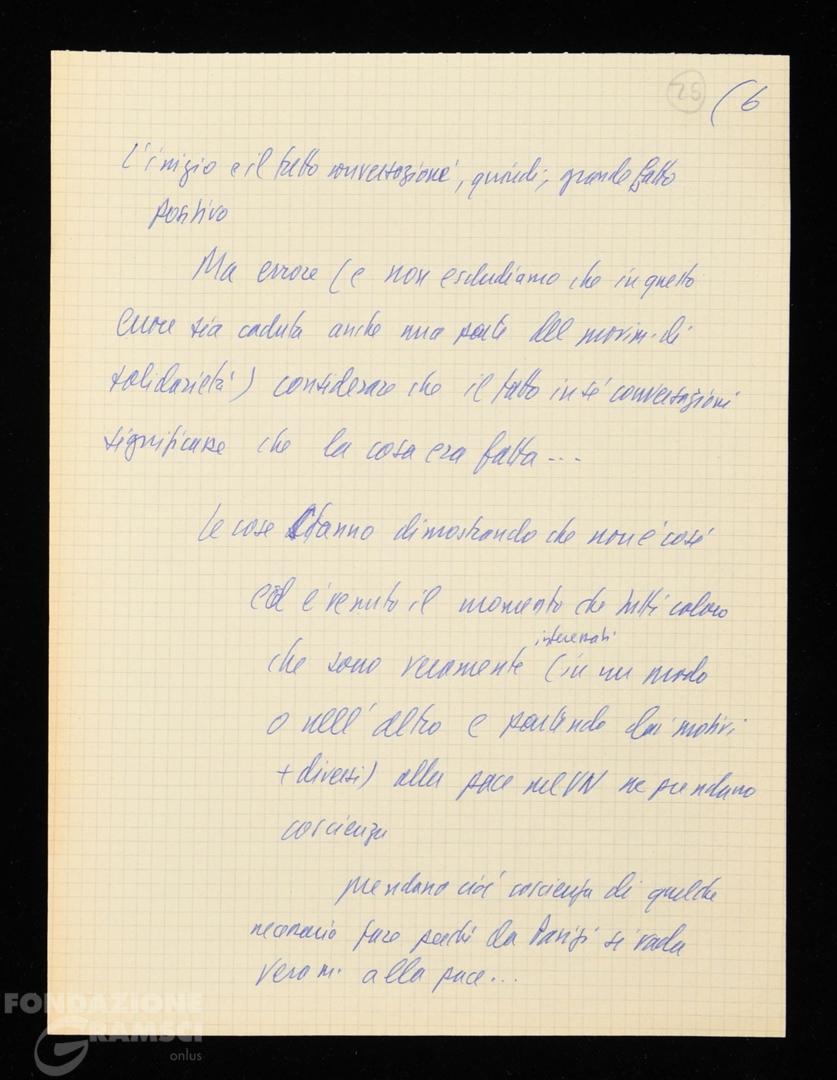 25 (6
L'inizio e il fatto conversazioni, quindi, grande fatto
positivo
Ma errore (e non escludiamo che in questo
errore sia caduta anche una parte del movim. di
solidarietà) considerare che il fatto in sé conversazioni
significasse che la cosa era fatta...
Le cose stanno dimostrando che non è così
ed è venuto il momento che tutti coloro
interessati
che sono veramente (in un modo
o nell'altro e partendo dai motivi
+ diversi) alla pace nel VN ne prendano
coscienza
prendano cioè coscienza di quel che
necessario fare perché da Parigi si vada
veram. alla pace...
FONDAZIONE
GRAMSCI
onlus